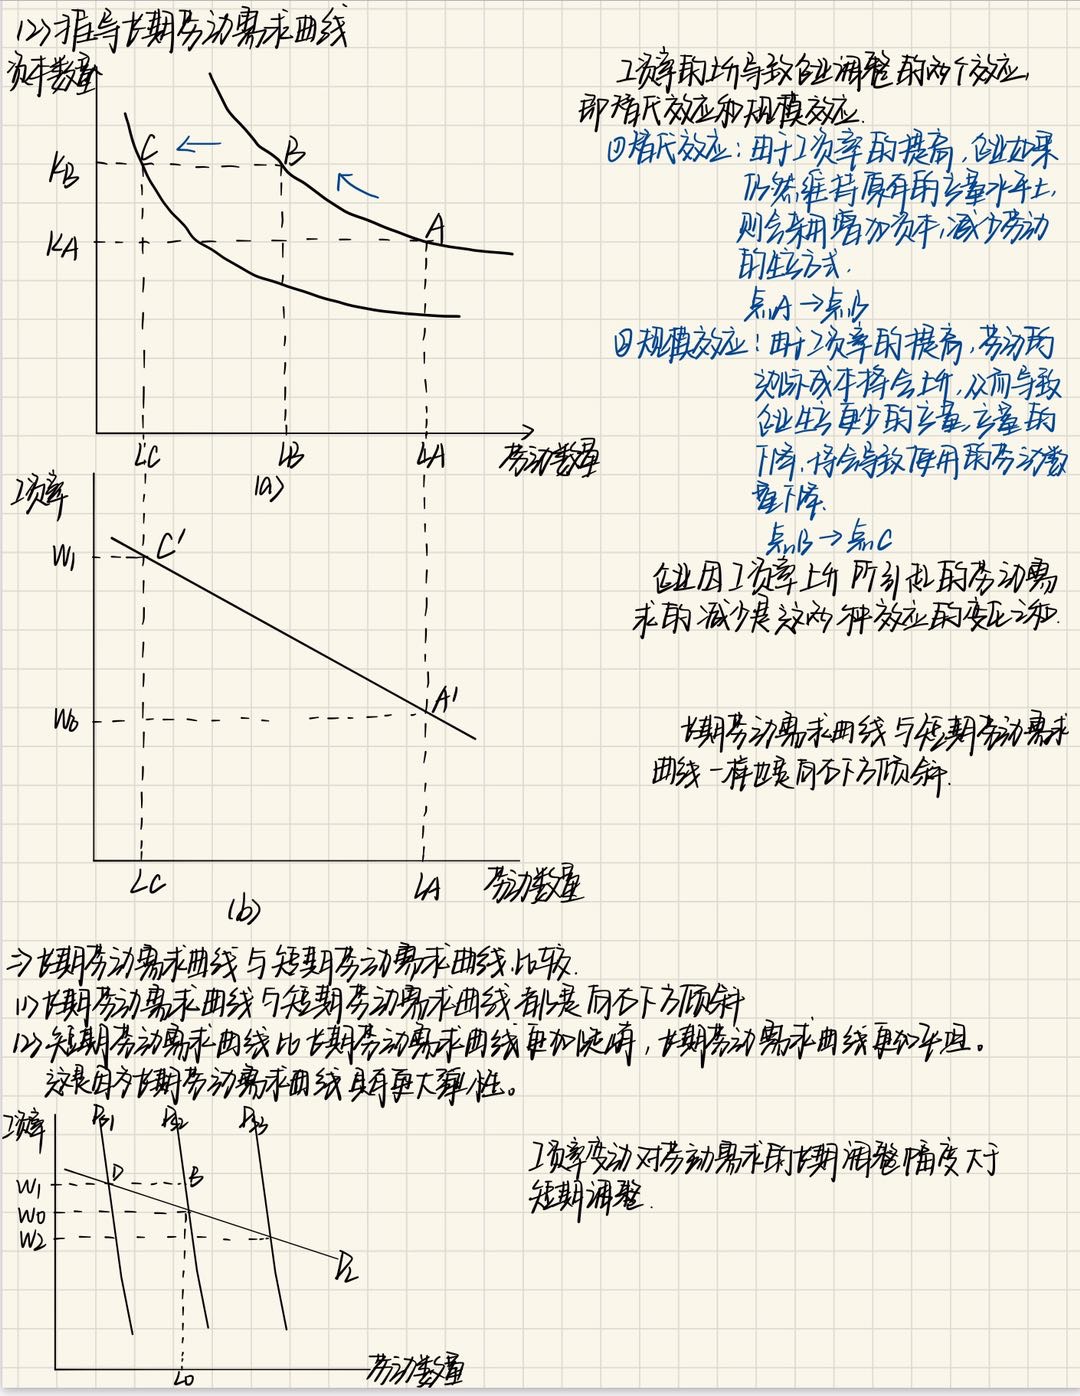 (2)推导长期劳动需求曲线
资本数量
KB
KA
C
B
A
LC
LB
LA
劳动数量
(a)
工资率的上升导致企业调整的两个效应,
即替代效应和规模效应.
①替代效应:由于工资率的提高,企业如果
仍然维持原有的产量水平上,
则会采用增加资本,减少劳动
的生产方式.
点A→点B
②规模效应:由于工资率的提高,劳动的
边际成本将会上升,从而导致
企业生产更少的产量,产量的
下降,将会导致使用的劳动数
量下降.
点B→点C
企业因工资率上升所引起的劳动需
求的减少是这两种效应的变化之和.
工资率
W1
W0
C'
A'
LC
LA
劳动数量
(b)
长期劳动需求曲线与短期劳动需求
曲线一样也是向右下方倾斜.
⇒长期劳动需求曲线与短期劳动需求曲线比较.
(1)长期劳动需求曲线与短期劳动需求曲线都是向右下方倾斜
(2)短期劳动需求曲线比长期劳动需求曲线更加陡峭,长期劳动需求曲线更加平坦。
这是因为长期劳动需求曲线具有更大弹性。
工资率
DS1
DS2
DS3
W1
W0
W2
D
B
DL
L0
劳动数量
工资率变动对劳动需求的长期调整幅度大于
短期调整.